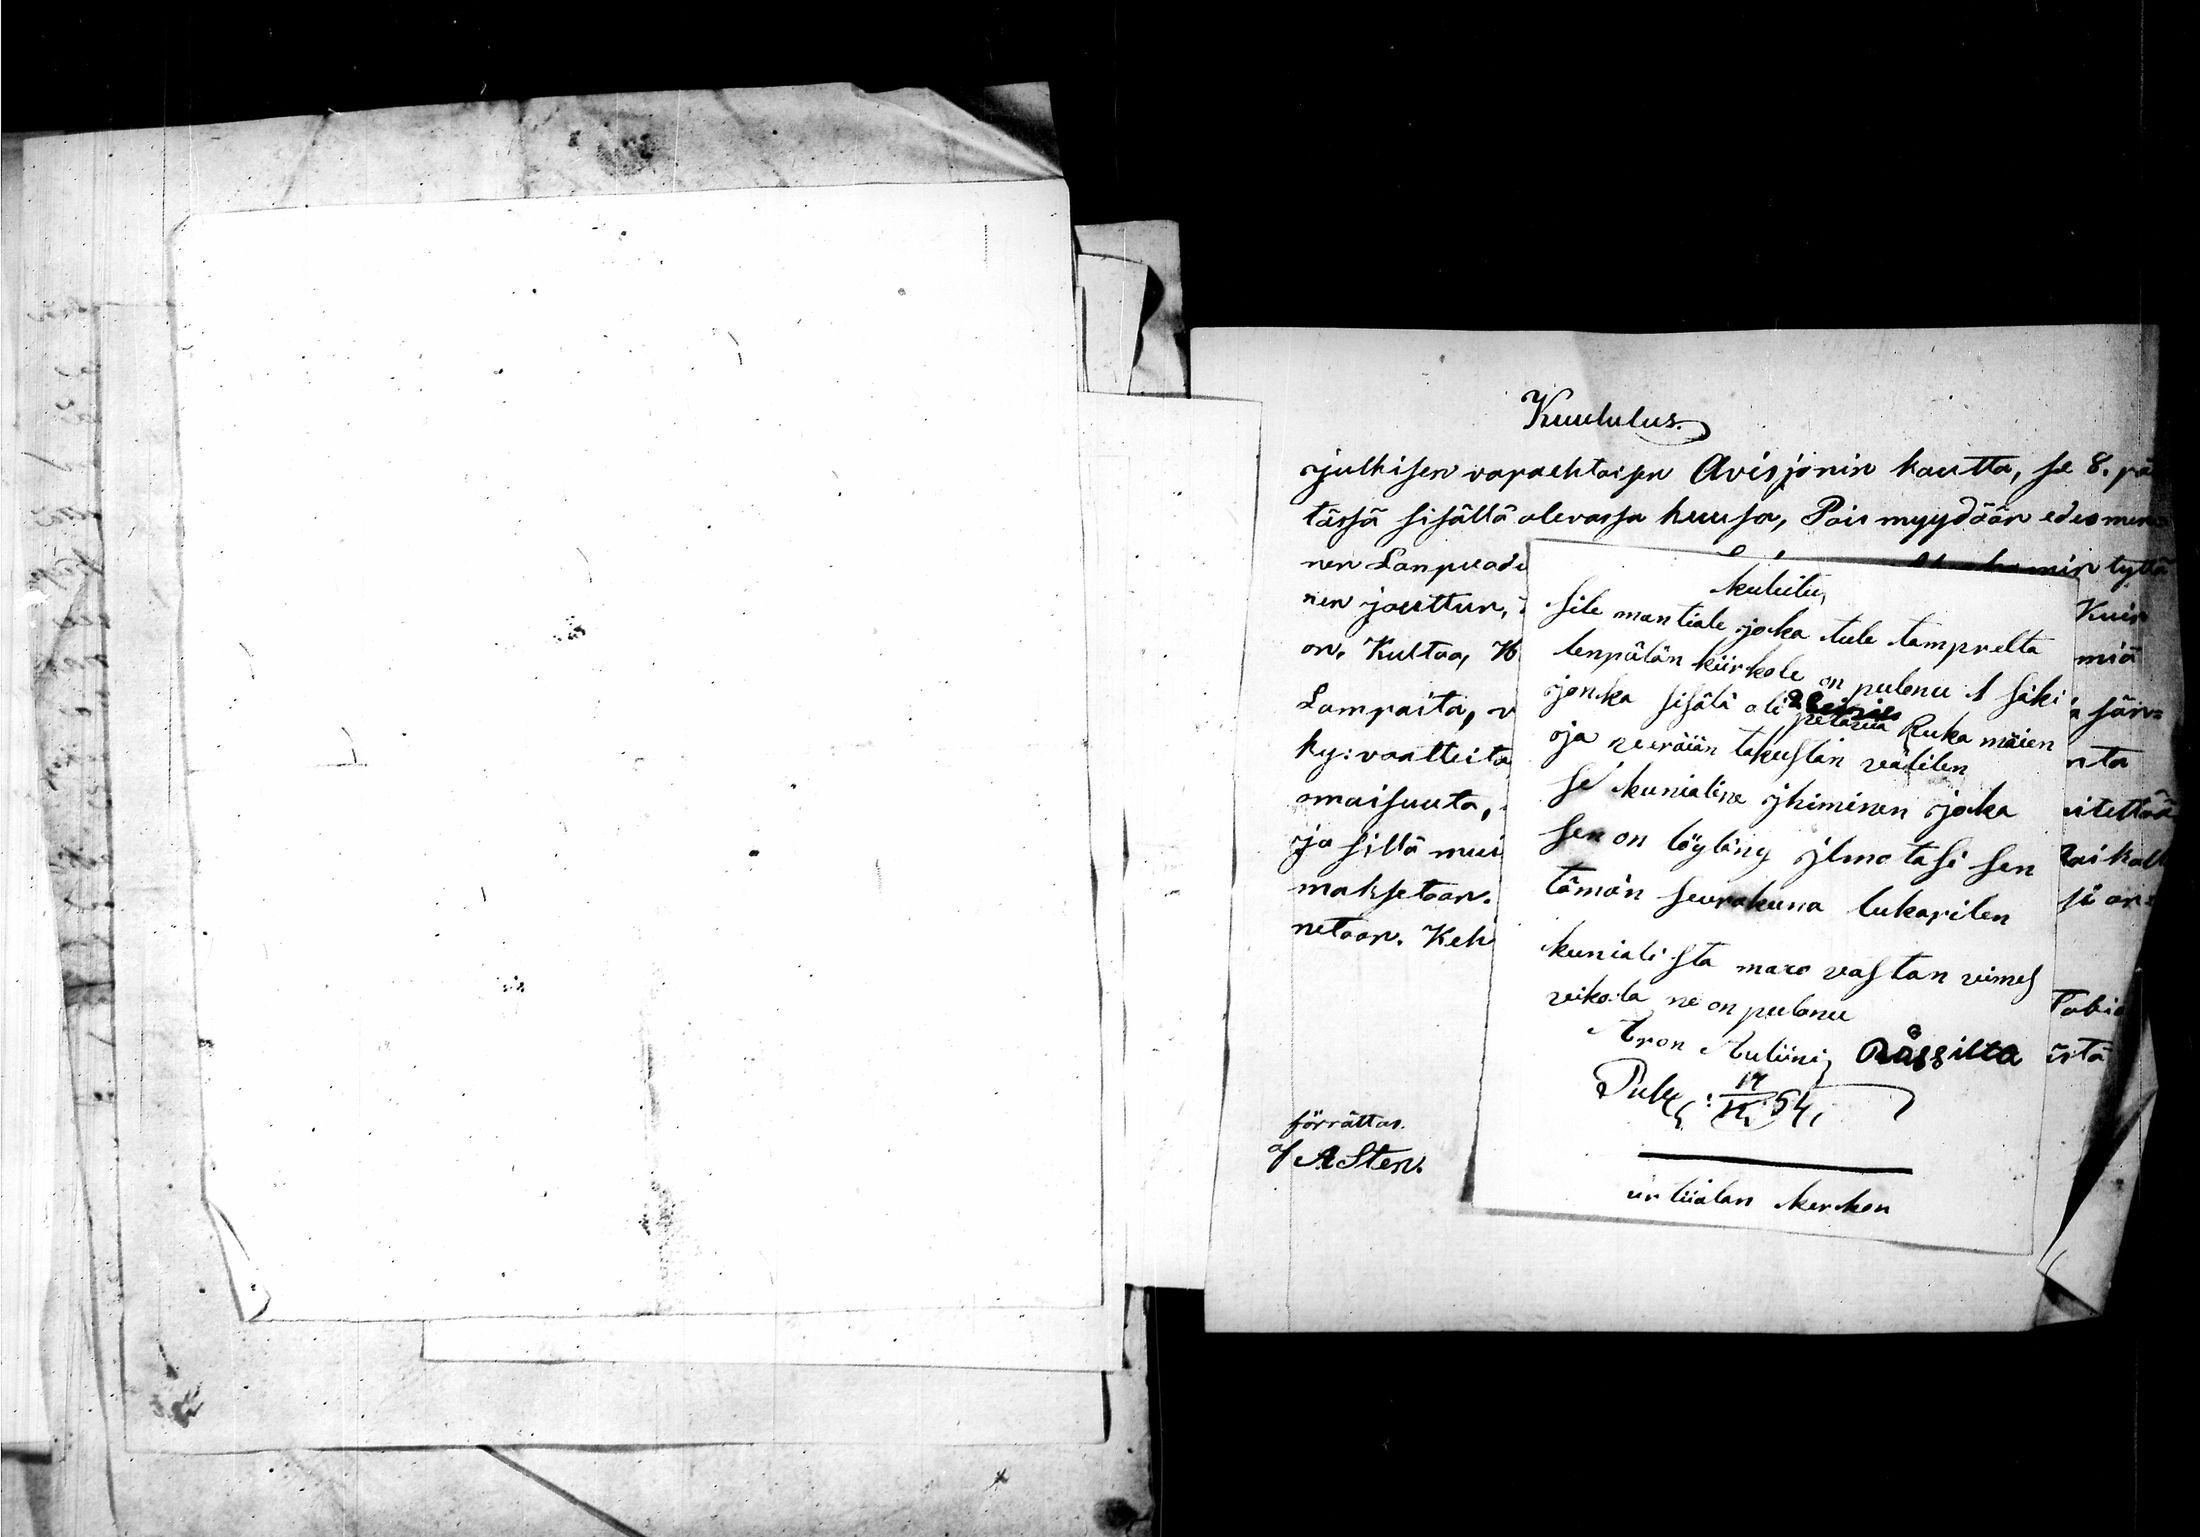 Kuululus.
julkisen vapaehtoisen Avisjonin kautta, se 8. pä
tässä sisällä olevassa kuusa, Pois myydään edesmen=
nen Lanpuodi
min tyttä
nen jouttun,
Kuin
on, Kultaa, H
miä
Lampaita, v
a jär=
ky: vaatteita
nta
omaisuuta,
itettää
ja sillä mui
Paikall
maksetaan.
si an=
netaan. Keh
Tobia
istä
förrättas.
af A Sten.
kulutu,
sile mantiale joka tule tamprelta
lenpälän kiirkole on pulonu 1 säki
jonka sisälä oli petäsiä Ruka mäien
oja veeräiän takustan välilen
se kunialine jhiminen joka
sen on löylöny jlmotasi sen
tämän seurakuna lukarilen
kunialista maxo vastan viimes
veikola ne on pulonu
Aron Auliini Råssilta
Pulx: 17/12 54,
urliialan kerkon